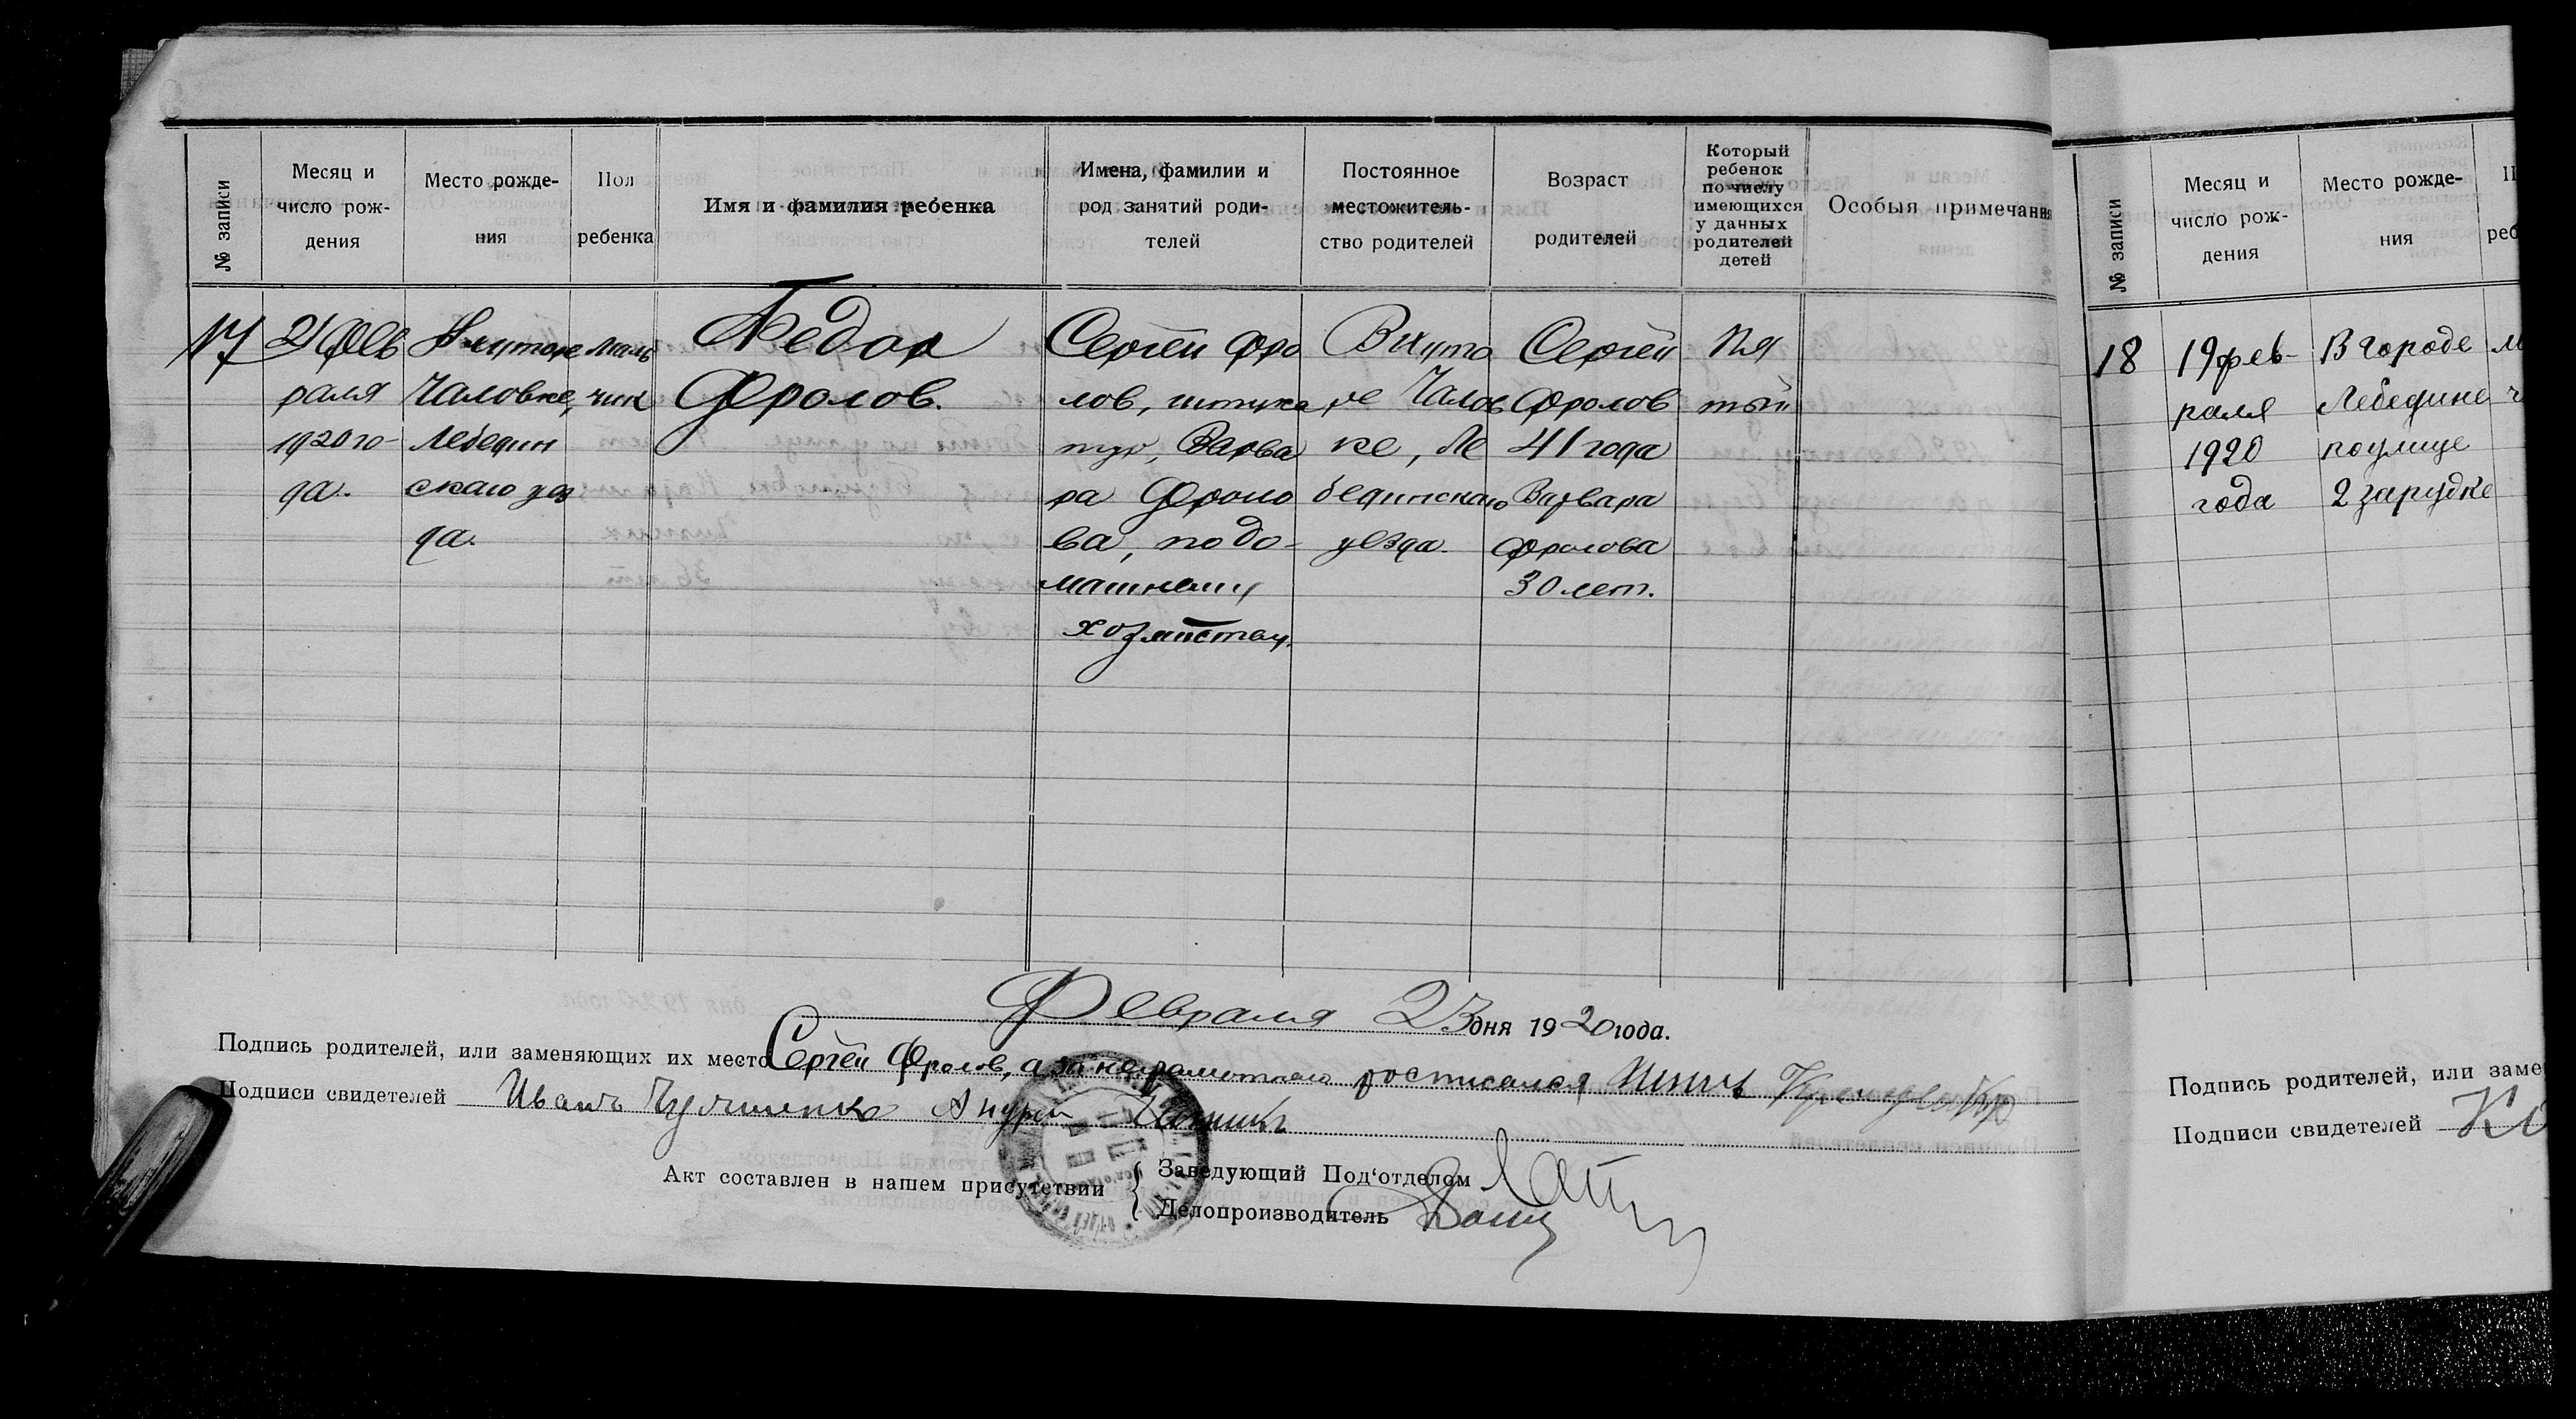 № записи
Месяц и
число рож-
дения
Место рожде-
ния
Пол
ребенка
Имя и фамилия ребенка
Имена, фамилии и
род занятий роди-
телей
Постоянное
местожитель-
ство родителей
Возраст
родителей
Который
ребенок
по числу
имеющихся
у данных
родителей
детей
Особыя примечания
17
21 фев
раля
1920 го-
да.
Хуторе
Чаловке,
Лебедин
скаго уез
да.
маль
чик
Федор
Фролов.
Сергей Фро
лов, штука
тур, Варва
ра Фроло
ва, по до-
машнему
хозяйству.
В хуто
ре Чалов
ке, Ле
бединскаго
уезда.
Сергей
Фролов
41 года
Варвара
Фролова
30 лет.
Пя
тый
Февраля 23 дня 1920 года.
Подпись родителей, или заменяющих их место Сергей Фролов, а за неграмотнаго росписался
Подписи свидетелей Иванъ
Акт составлен в нашем присутствии
Заведующий Под'отделом
Делопроизводитель
№ записи
Месяц и
число рож-
дения
Место рожде-
ния
П
реб
18
19 фев-
раля
1920
года
В городе
Лебедине
по улице
2 зарудке
м
ч
Подпись родителей, или заме
Подписи свидетелей